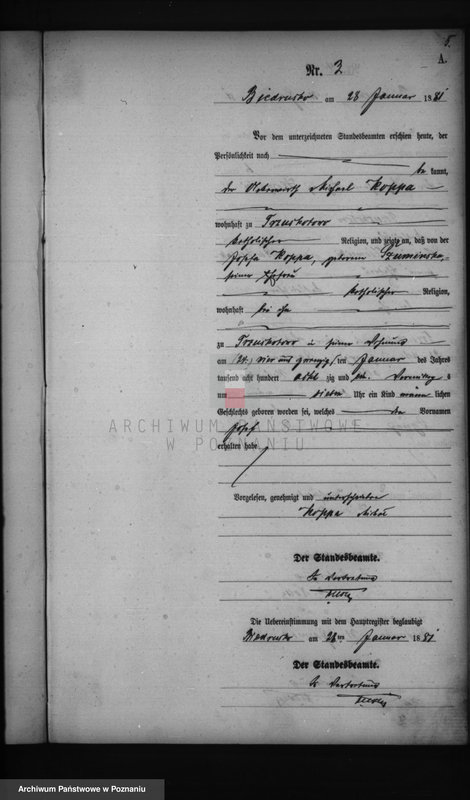 5.
A.
Nr. 3
Biedrusko am 28 Januar 1881
Vor dem unterzeichneten Standesbeamten erschien heute, der
Persönlichkeit nach
be kannt,
der Michael Koppa
wohnhaft zu
katholischer Religion, und zeigte an, daß von der
Josepha Koppa, geborenen
seiner Ehefrau
katholischer Religion,
wohnhaft bei ihm
zu in seiner Wohnung
am (24.) vier und zwanzig ten Januar des Jahres
tausend acht hundert acht zig und Vormittag s
um sieben Uhr ein Kind männ lichen
Geschlechts geboren worden sei, welches den Vornamen
Josef
erhalten habe
Vorgelesen, genehmigt und unterschrieben
Koppa
Der Standesbeamte.
In Vertretung
Die Uebereinstimmung mit dem Hauptregister beglaubigt
Biedrusko am 28ten Januar 1881
Der Standesbeamte.
In Vertretung
ARCHIWUM PAŃSTWOWE
W POZNANIU
Archiwum Państwowe w Poznaniu